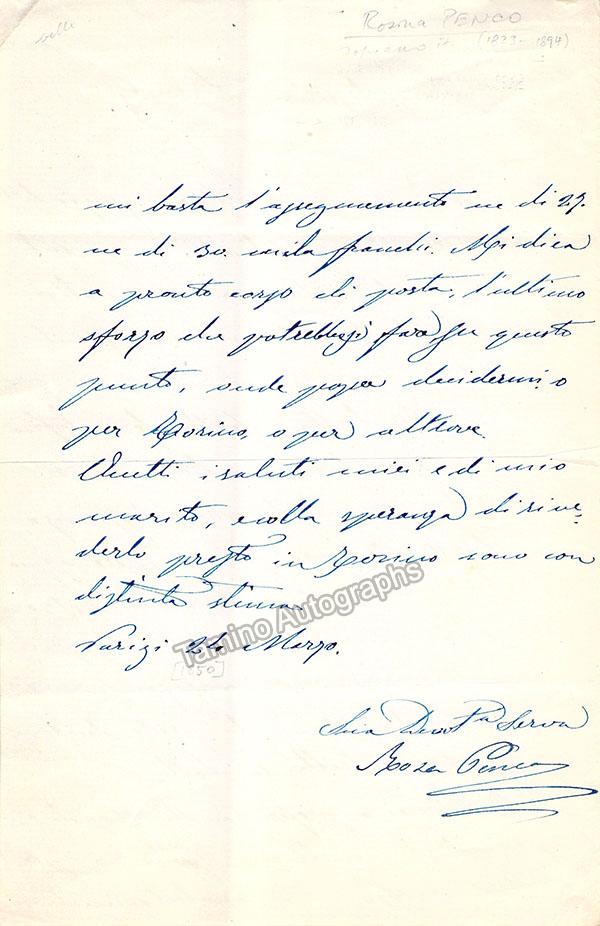 Rosina PENCO
soprano it. (1823-1894)
mi basta l'assegnamento ne di 29.
ne di 30. mila franchi. Mi dica
a pronto corso di posta, l'ultimo
sforzo che potrebbesi fare su questo
punto, onde possa decidermi o
per Torino, o per altrove.
Accetti i saluti miei e di mio
marito, e colla speranza di rive-
derlo presto in Torino sono con
distinta stima
Parigi 24 Marzo.
[1850]
Sua Devot.ma Serva
Rosina Penco
Tamino Autographs